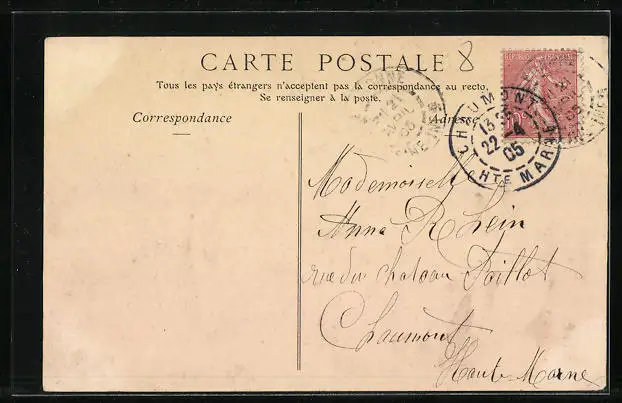 CARTE POSTALE
8
Tous les pays étrangers n'acceptent pas la correspondance au recto.
Se renseigner à la poste.
Correspondance
Adresse
CHAUMONT
22 4
05
HTE MARNE
Mademoiselle
Anna Rhein
rue du chateau Paillot
Chaumont
Haute Marne